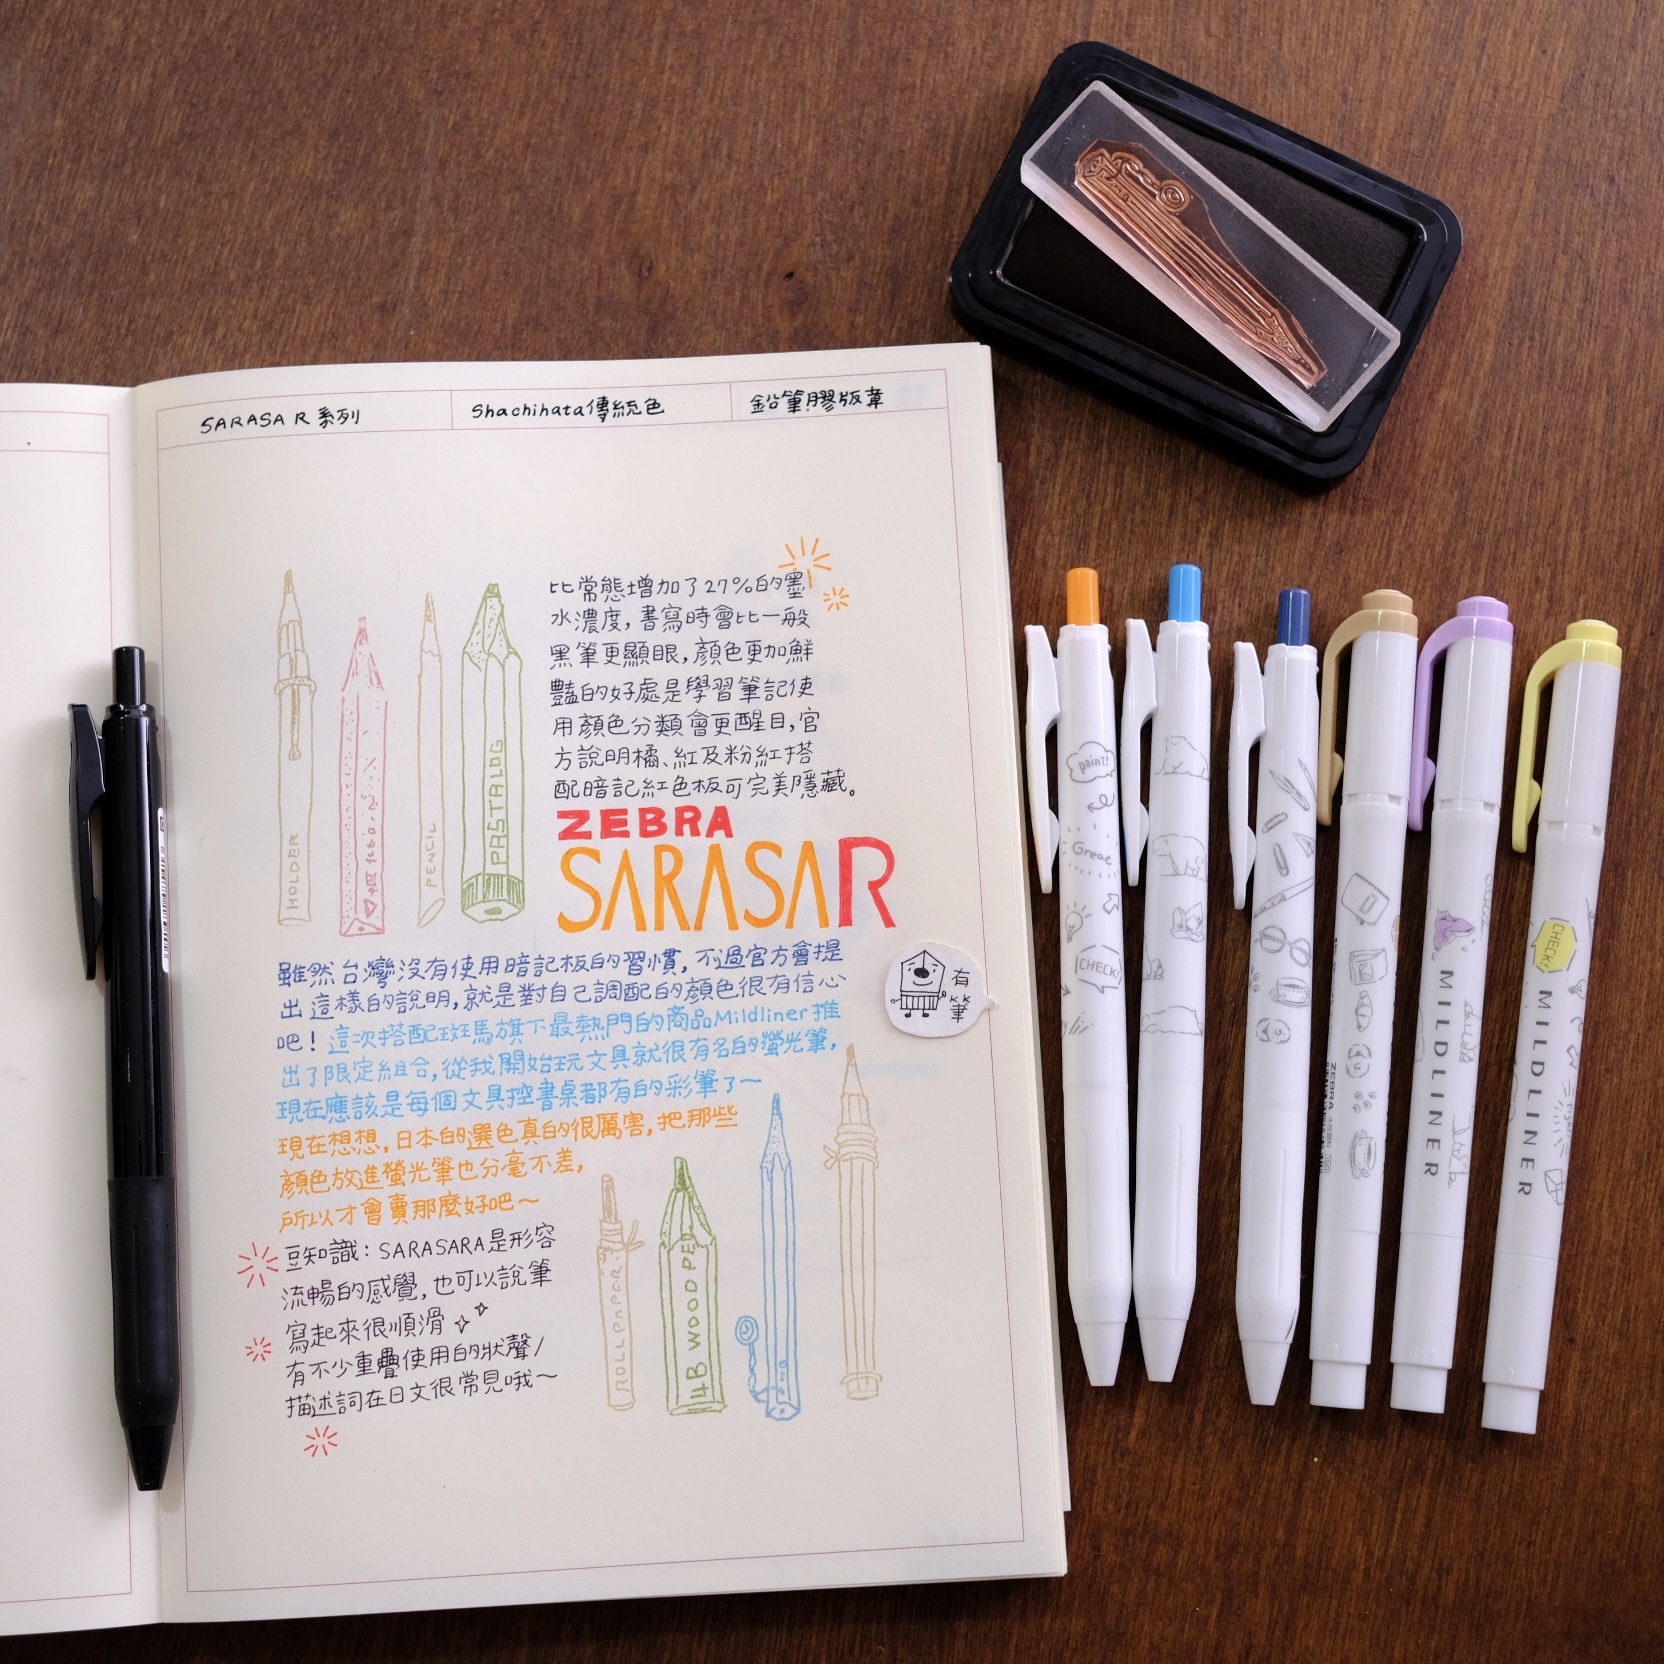 SARASA R 系列
Shachihata傳統色
鉛筆膠版章
比常態增加了27%的墨
水濃度,書寫時會比一般
黑筆更顯眼,顏色更加鮮
豔的好處是學習筆記使
用顏色分類會更醒目,官
方說明橘、紅及粉紅搭
配暗記紅色板可完美隱藏。
ZEBRA
SARASAR
HOLDER
PENCIL
PASTALOG
雖然台灣沒有使用暗記板的習慣,不過官方會提
出這樣的說明,就是對自己調配的顏色很有信心
吧!這次搭配斑馬旗下最熱門的商品Mildliner推
出了限定組合,從我開始玩文具就很有名的螢光筆,
現在應該是每個文具控書桌都有的彩筆了~
現在想想,日本的選色真的很厲害,把那些
顏色放進螢光筆也分毫不差,
所以才會賣那麼好吧~
豆知識:SARASARA是形容
流暢的感覺,也可以說筆
寫起來很順滑
有不少重疊使用的狀聲/
描述詞在日文很常見哦~
ROLLPAPER
HB WOOD PE
有
筆
point!
Great
CHECK!
ZEBRA
MILDLINER
CHECK!
MILDLINER